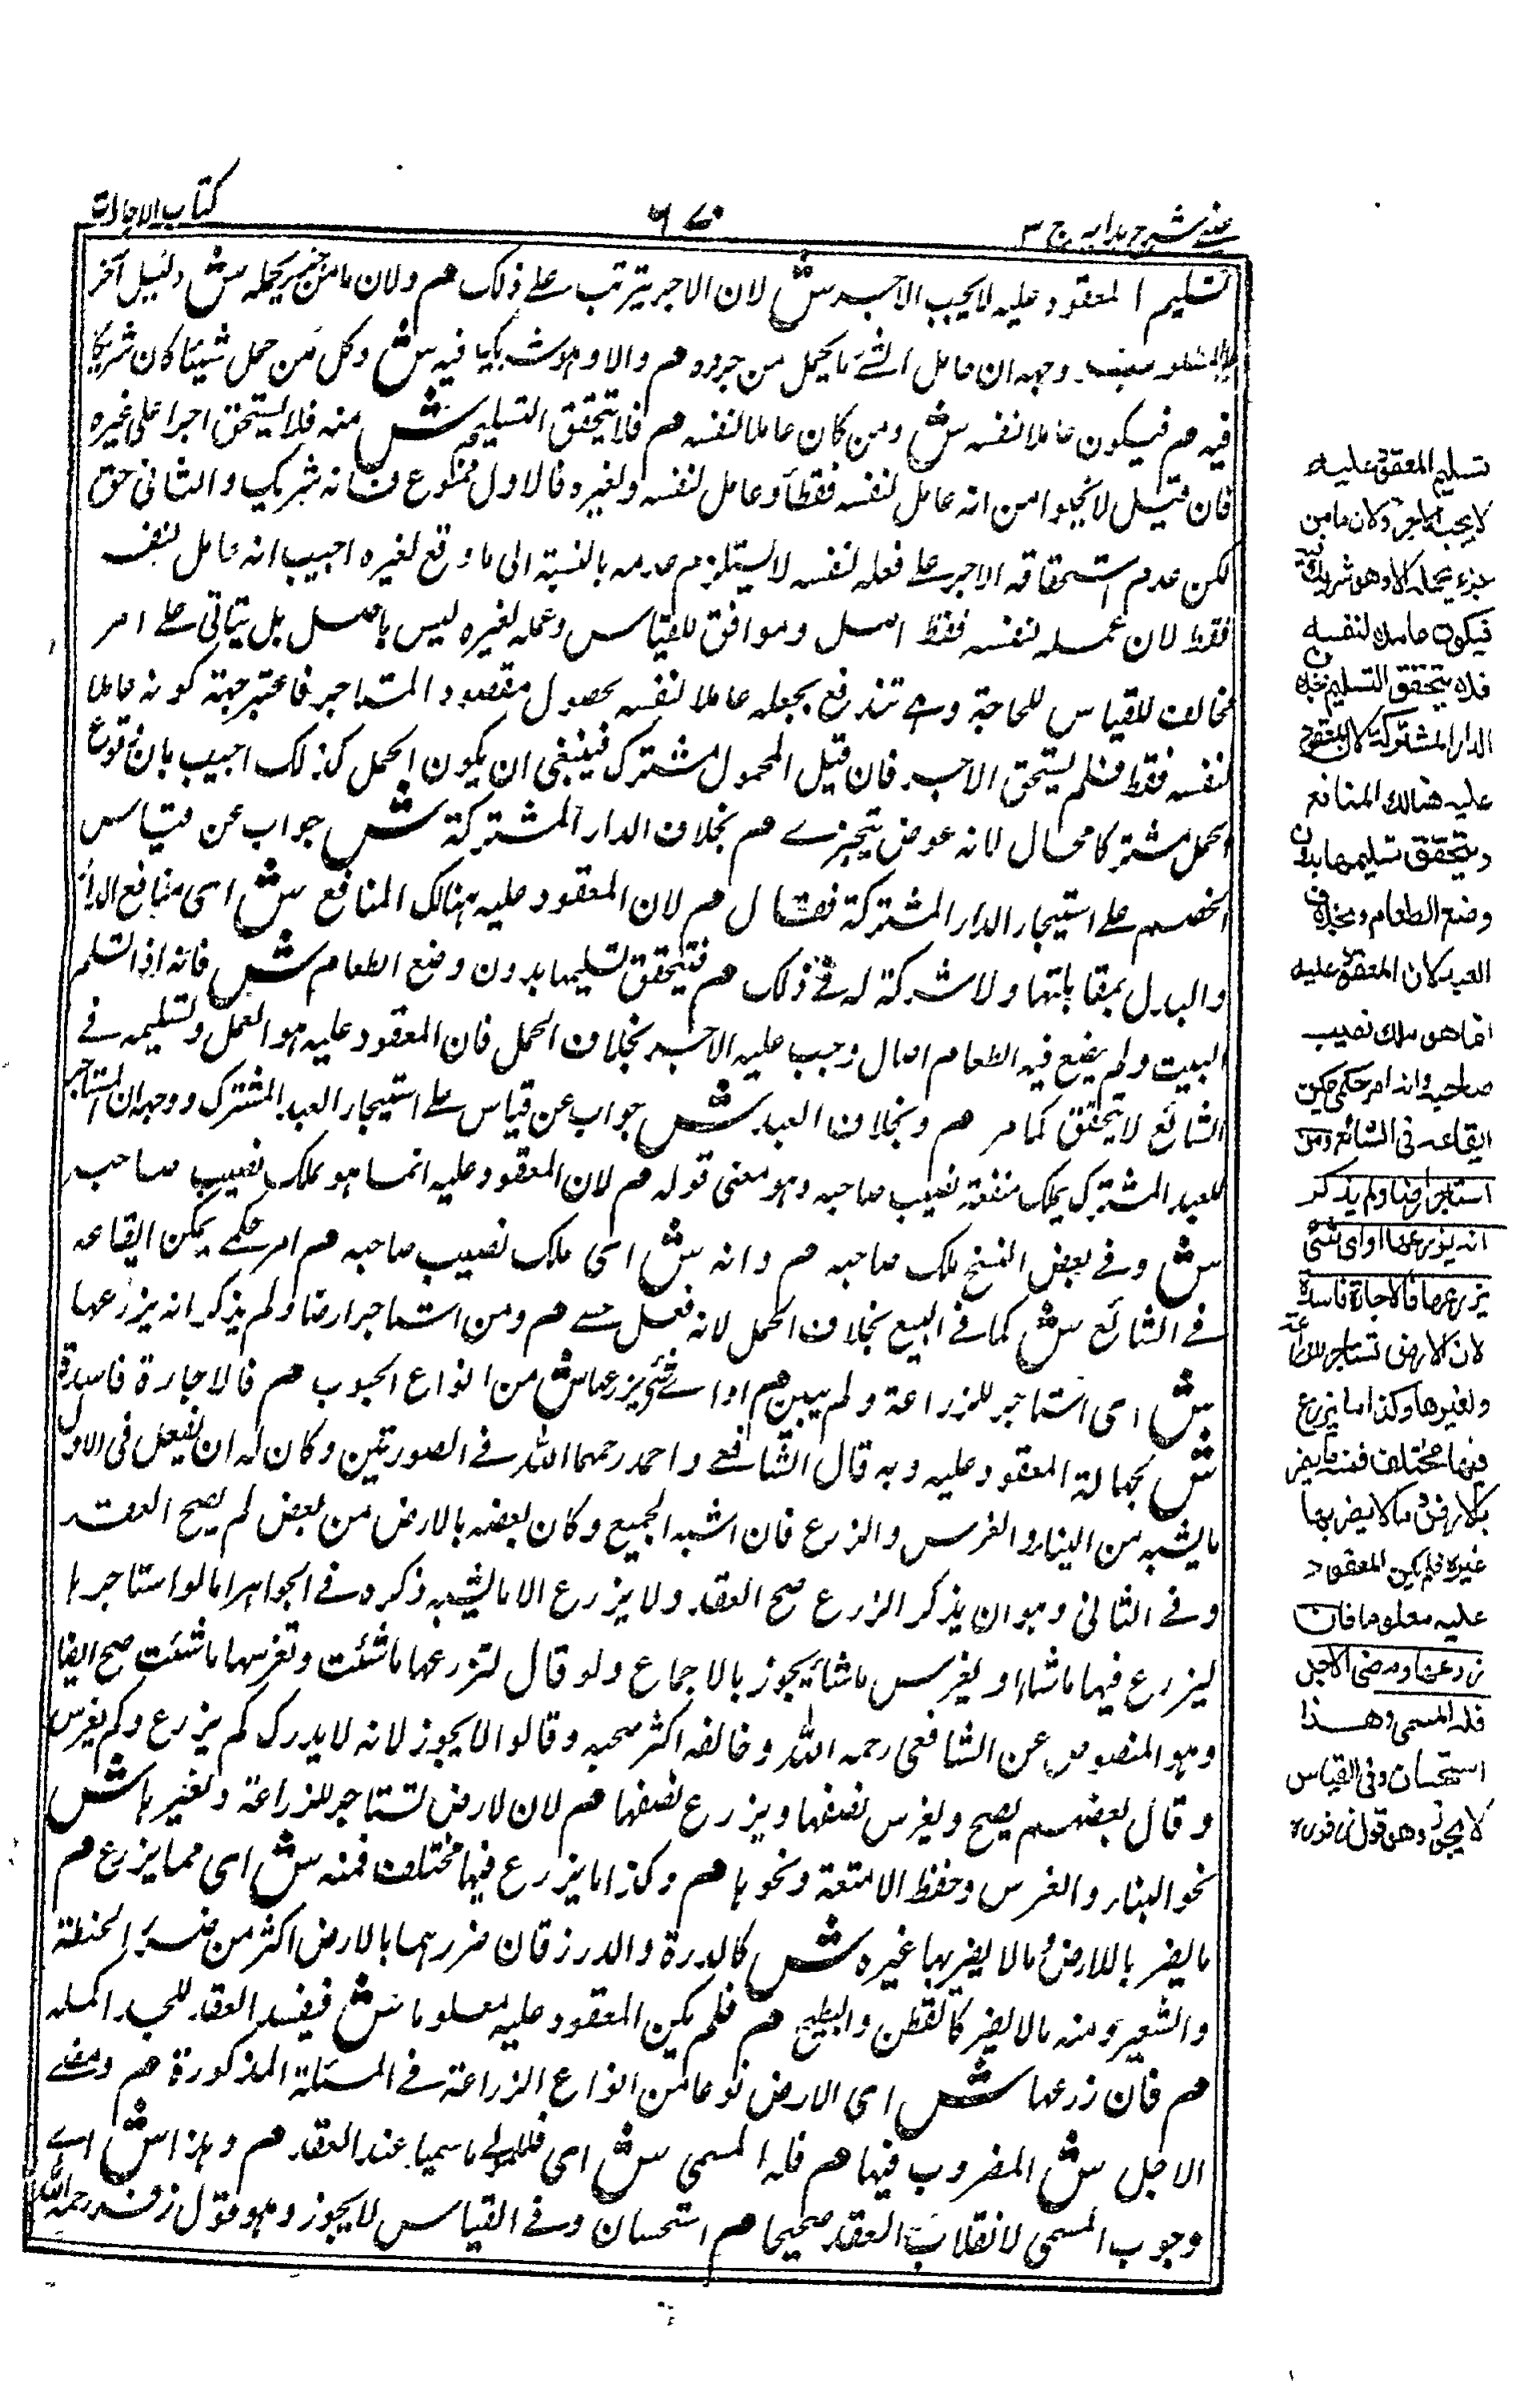 عینی شرح ہدایہ ج ۳
۶۷۰
کتاب الاجارات
تسلیم المعقود علیہ لایجب الاجر ش لان الاجر یترتب علی ذلک م ولان مامن جزء یحملہ ش دلیل آخر
وجہہ ان حامل الشئ مایحمل من جزوہ م والا وہو شریک فیہ ش وکل من حمل شیئا کان شریکا
فیہ م فیکون عاملا لنفسہ ش ومن کان عاملا لنفسہ م فلا یتحقق التسلیم ش منہ فلا یستحق اجرا علی غیرہ
فان قیل لا یخلوا من انہ عامل لنفسہ فقط او عامل لنفسہ ولغیرہ فالاول ممنوع فانہ شریک والثانی حق
لکن عدم استحقاقہ الاجر علی فعلہ لنفسہ لا یستلزم عدمہ بالنسبۃ الی ما وقع لغیرہ اجیب انہ عامل لنفسہ
فقط لان عملہ لنفسہ فقط اصل وموافق للقیاس وعملہ لغیرہ لیس باصل بل یتاتی علی امر
مخالف للقیاس للحاجۃ وہی تندفع بجعلہ عاملا لنفسہ لحصول مقصود المستاجر فاعتبر جہۃ کونہ عاملا
لنفسہ فقط فلم یستحق الاجر فان قیل المحمول مشترک فینبغی ان یکون الحمل کذلک اجیب بان وقوع
الحمل مشترکا محال لانہ عوض یتجزی م بخلاف الدار المشترکۃ ش جواب عن قیاس
الخصم علی استیجار الدار المشترکۃ فقال م لان المعقود علیہ ہنالک المنافع ش ای منافع الدار
والبدل بمقابلتہا ولا شرکۃ لہ فی ذلک م فیتحقق تسلیمہا بدون وضع الطعام ش فانہ اذا تسلم
البیت ولم یضع فیہ الطعام اصلا وجب علیہ الاجر بخلاف الحمل فان المعقود علیہ ہو العمل وتسلیمہ فی
الشائع لا یتحقق کما مر م وبخلاف العبد ش جواب عن قیاس علی استیجار العبد المشترک ووجہہ ان المستاجر
للعبد المشترک یملک منفعۃ نصیب صاحبہ وہو معنی قولہ م لان المعقود علیہ انما ہو ملک نصیب صاحبہ
ش وفی بعض النسخ ملک صاحبہ م وانہ ش ای ملک نصیب صاحبہ م امر حکمی یمکن ایقاعہ
فی الشائع ش کما فی البیع بخلاف الحمل لانہ فعل حسی م ومن استاجر ارضا ولم یذکر انہ یزرعہا
ش ای استاجر للزراعۃ ولم یبین م او ای شئ یزرعہا ش من انواع الحبوب م فالاجارۃ فاسدۃ
ش لجہالۃ المعقود علیہ وبہ قال الشافعی واحمد رحمہما اللہ فی الصورتین وکان لہ ان یفعل فی الاول
ما یشبہ من البناء والغرس والزرع فان اشبہ الجمیع وکان بعضہ بالارض من بعض لم یصح العقد
وفی الثانی وہو ان یذکر الزرع صح العقد ولا یزرع الا ما یشبہ ذکرہ فی الجواہر اما لو استاجرہا
لیزرع فیہا ما شاء او لیغرس ما شاء یجوز بالاجماع ولو قال لتزرعہا ما شئت وتغرسہا ما شئت صح ایضا
وہو المنصوص عن الشافعی رحمہ اللہ وخالفہ اکثر صحبہ وقالوا لا یجوز لانہ لا یدرک کم یزرع وکم یغرس
وقال بعضہم یصح ویغرس نصفہا ویزرع نصفہا م لان الارض تستاجر للزراعۃ ولغیرہا ش
نحو البناء والغرس وحفظ الامتعۃ ونحوہا م وکذا ما یزرع فیہا مختلف فمنہ ش ای مما یزرع م
ما یضر بالارض وما لا یضر بہا غیرہ ش کالذرۃ والارز فان ضررہما بالارض اکثر من ضرر الحنطۃ
والشعیر ومنہ ما لا یضر کالقطن والبطیخ م فلم یکن المعقود علیہ معلوما ش فیفسد العقد للجہالۃ
م فان زرعہا ش ای الارض نوعا من انواع الزراعۃ فی المسئلۃ المذکورۃ م ومضی
الاجل ش المضروب فیہا م فلہ المسمی ش ای فللمولی ما سمیا عند العقد م وہذا ش ای
وجوب المسمی لانقلاب العقد صحیحا م استحسان وفی القیاس لا یجوز وہو قول زفر رحمہ اللہ
تسلیم المعقود علیہ
لا یجب الاجر ولان ما من
جزء یحملہ الا وهو شریک فیہ
فیکون عاملا لنفسہ
فلا یتحقق التسلیم بخلاف
الدار المشترکۃ لان المعقود
علیہ هنالک المنافع
ویتحقق تسلیمها بدون
وضع الطعام وبخلاف
العبد لان المعقود علیہ
انما هو ملک نصیب
صاحبہ وانہ امر حکمی یمکن
ایقاعہ فی الشائع ومن
استاجر ارضا ولم یذکر
انہ یزرعها او ای شئ
یزرعها فالاجارۃ فاسدۃ
لان الارض تستاجر للزراعۃ
ولغیرها وکذا ما یزرع
فیها مختلف فمنہ ما یضر
بالارض وما لا یضر بها
غیرہ فلم یکن المعقود
علیہ معلوما فان
زرعها ومضی الاجل
فلہ المسمی وهذا
استحسان وفی القیاس
لا یجوز وهو قول زفر رہ